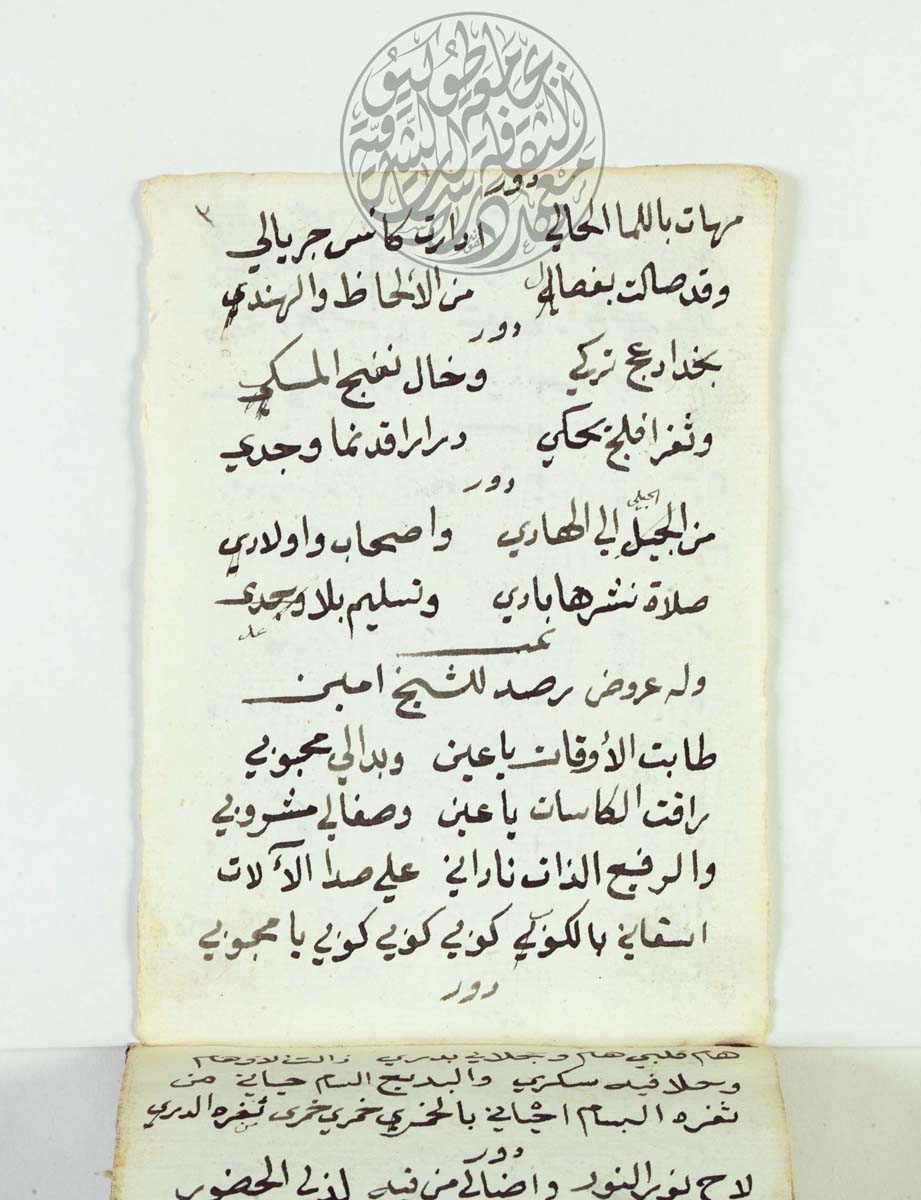 دور
مهات باللما الحالي ادارت كاس جريالي
وقد صالت بفصال من الألحاظ والهندي
دور
بخد ادعج تركي وخال نفيح المسكي
وثغر افلج يحكي درارا قد نما وجدي
دور
من الجيلي الي الهادي واصحاب واولادي
صلاة نشرها بادي وتسليم بلا
وله عروض رصد للشيخ امين
طابت الأوقات يا عين وبدا لي محبوبي
راقت الكاسات يا عين وصفا لي مشروبي
والرفيع الذات ناداني علي صدا الآلات
اسقاني بالكوبي كوبي كوبي كوبي يا محبوبي
دور
هام قلبي هام وجلا بدري زالت الاوهام
وحلا فيه سكري والبديع السام حياني من
ثغره البسام احياني بالخمري خمري خمري ثغره الدري
دور
لاح نور النور واضالي من فيه لذ لي الحضور